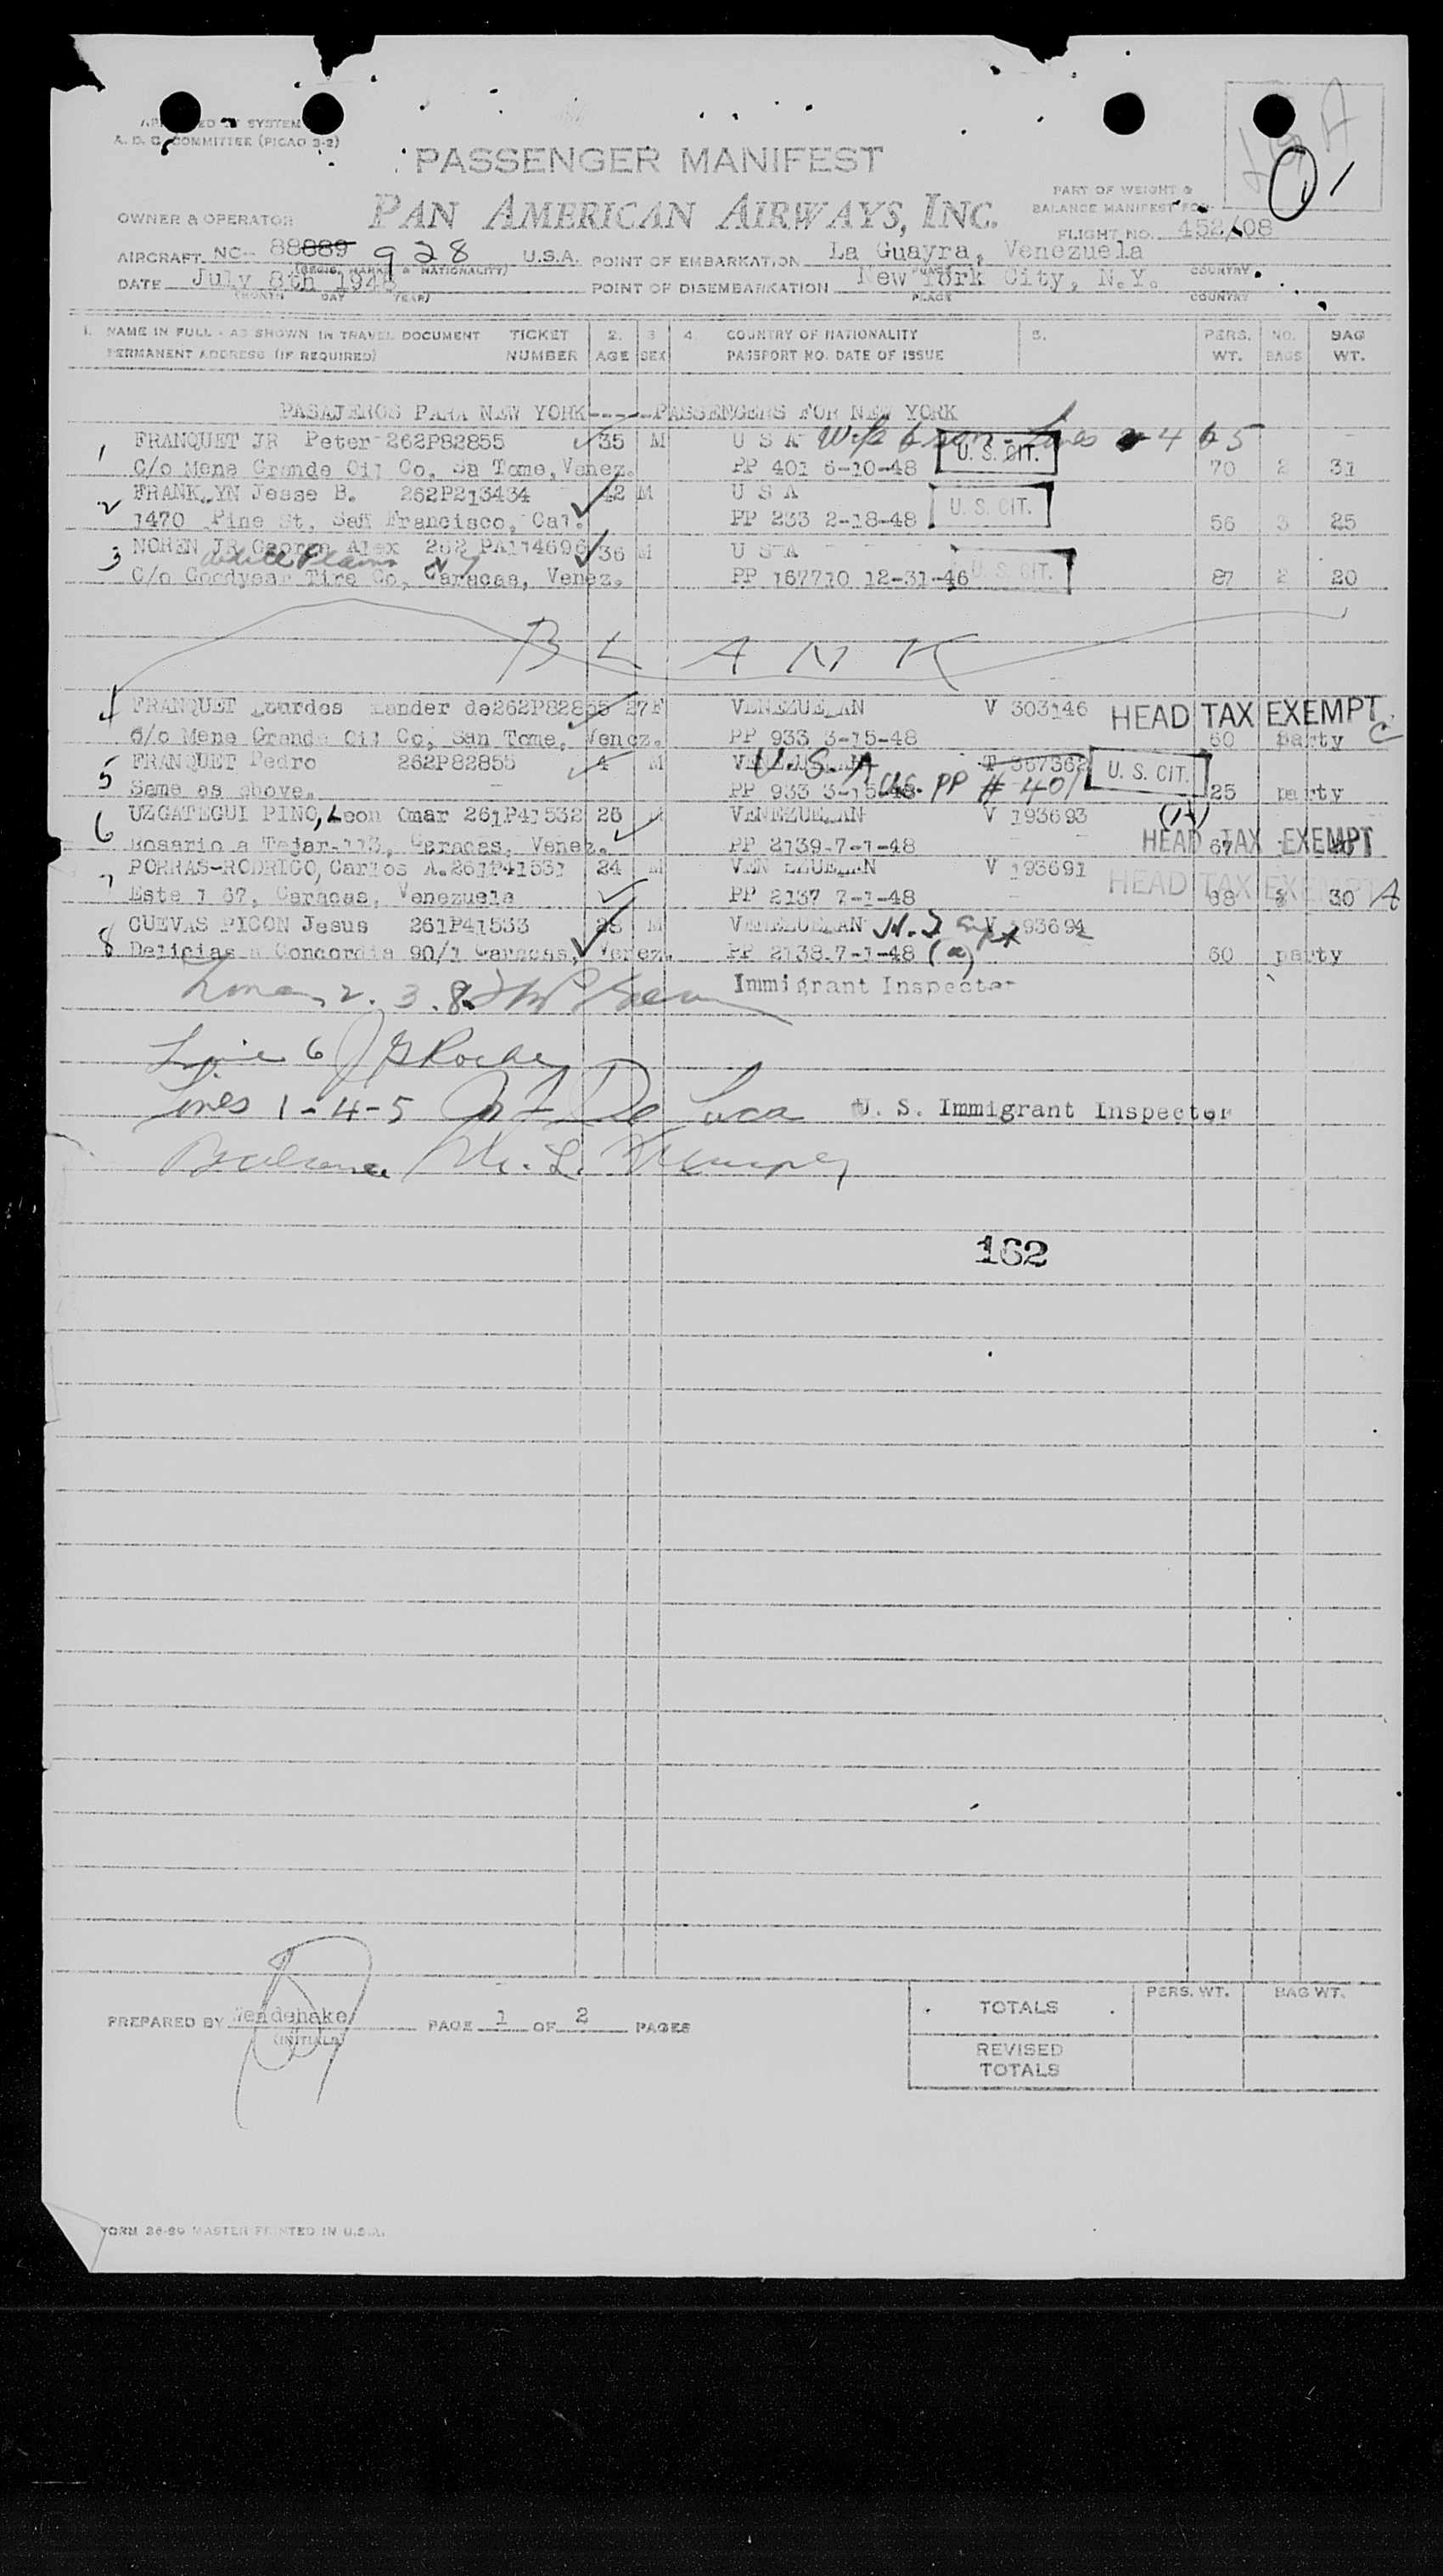 A. D. C. COMMITTEE (PICAO 3-2)
PASSENGER MANIFEST
PART OF WEIGHT &
BALANCE MANIFEST FOR
OWNER & OPERATOR PAN AMERICAN AIRWAYS, INC.
FLIGHT NO. 452/08
AIRCRAFT NC- 88889 928 U.S.A. POINT OF EMBARKATION La Guayra, Venezuela
(REGIS. MARKS & NATIONALITY) PLACE COUNTRY
DATE July 8th 1948 POINT OF DISEMBARKATION New York City, N.Y.
(MONTH DAY YEAR) PLACE COUNTRY
1. NAME IN FULL - AS SHOWN IN TRAVEL DOCUMENT TICKET 2. 3 4. COUNTRY OF NATIONALITY 5. PERS. NO. BAG
PERMANENT ADDRESS (IF REQUIRED) NUMBER AGE SEX PASSPORT NO. DATE OF ISSUE WT. BAGS WT.
PASAJEROS PARA NEW YORK-----PASSENGERS FOR NEW YORK
1 FRANQUET JR Peter 262P82855 35 M U S A Lines 4 & 5
C/o Mene Grande Oil Co, Sa Tome, Venez. PP 401 6-10-48 U.S. CIT. 70 2 31
2 FRANKLYN Jesse B. 262P213434 42 M U S A
1470 Pine St, San Francisco, Cal. PP 233 2-18-48 U.S. CIT. 56 3 25
3 NOREN JR George Alex 262 PA114696 36 M U S A
White Plains NY
C/o Goodyear Tire Co, Caracas, Venez. PP 167710 12-31-46 U.S. CIT. 87 2 20
BLANK
4 FRANQUET Lourdes Lander de 262P82855 27 F VENEZUELAN V 303146 HEAD TAX EXEMPT C
C/o Mene Grande Oil Co, San Tome, Venez. PP 933 3-15-48 60 party
5 FRANQUET Pedro 262P82855 4 M VENEZUELAN U.S.A T 367362 U.S. CIT.
Same as above. PP 933 3-15-48 US. PP # 401 25 party
6 UZCATEGUI PINO, Leon Omar 261P41532 25 M VENEZUELAN V 193693 (A)
Rosario a Tejar-113, Caracas, Venez. PP 2139-7-1-48 HEAD TAX EXEMPT 67
7 PORRAS-RODRIGO, Carlos A. 261P41531 24 M VENEZUELAN V 193691
Este 1 67, Caracas, Venezuela PP 2137 7-1-48 HEAD TAX EXEMPT 68 3 30 A
8 CUEVAS PICON Jesus 261P41533 M VENEZUELAN V 193694
Delicias a Concordia 90/1 Caracas, Venez. PP 2138.7-1-48 (a) 60 party
Lines 2. 3. 8. Immigrant Inspector
Line 6 J G Roche
Lines 1-4-5 De Luca U. S. Immigrant Inspector
Balance
162
PREPARED BY Wendehake PAGE 1 OF 2 PAGES
(INITIALS)
PERS. WT. BAG WT.
TOTALS
REVISED
TOTALS
FORM 26-80 MASTER PRINTED IN U.S.A.